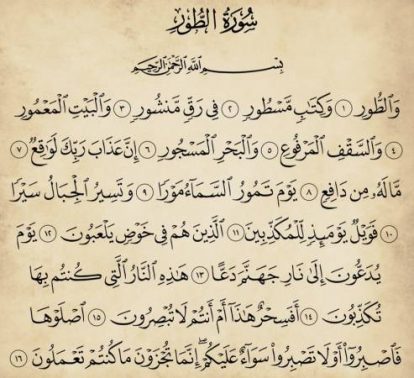 سُورَةُ الطُّورِ
بِسْمِ اللَّهِ الرَّحْمَٰنِ الرَّحِيمِ
وَالطُّورِ ١ وَكِتَابٍ مَّسْطُورٍ ٢ فِي رَقٍّ مَّنشُورٍ ٣ وَالْبَيْتِ الْمَعْمُورِ
٤ وَالسَّقْفِ الْمَرْفُوعِ ٥ وَالْبَحْرِ الْمَسْجُورِ ٦ إِنَّ عَذَابَ رَبِّكَ لَوَاقِعٌ ٧
مَّا لَهُ مِن دَافِعٍ ٨ يَوْمَ تَمُورُ السَّمَاءُ مَوْرًا ٩ وَتَسِيرُ الْجِبَالُ سَيْرًا
١٠ فَوَيْلٌ يَوْمَئِذٍ لِّلْمُكَذِّبِينَ ١١ الَّذِينَ هُمْ فِي خَوْضٍ يَلْعَبُونَ ١٢ يَوْمَ
يُدَعُّونَ إِلَىٰ نَارِ جَهَنَّمَ دَعًّا ١٣ هَٰذِهِ النَّارُ الَّتِي كُنتُم بِهَا
تُكَذِّبُونَ ١٤ أَفَسِحْرٌ هَٰذَا أَمْ أَنتُمْ لَا تُبْصِرُونَ ١٥ اصْلَوْهَا
فَاصْبِرُوا أَوْ لَا تَصْبِرُوا سَوَاءٌ عَلَيْكُمْ ۖ إِنَّمَا تُجْزَوْنَ مَا كُنتُمْ تَعْمَلُونَ ١٦